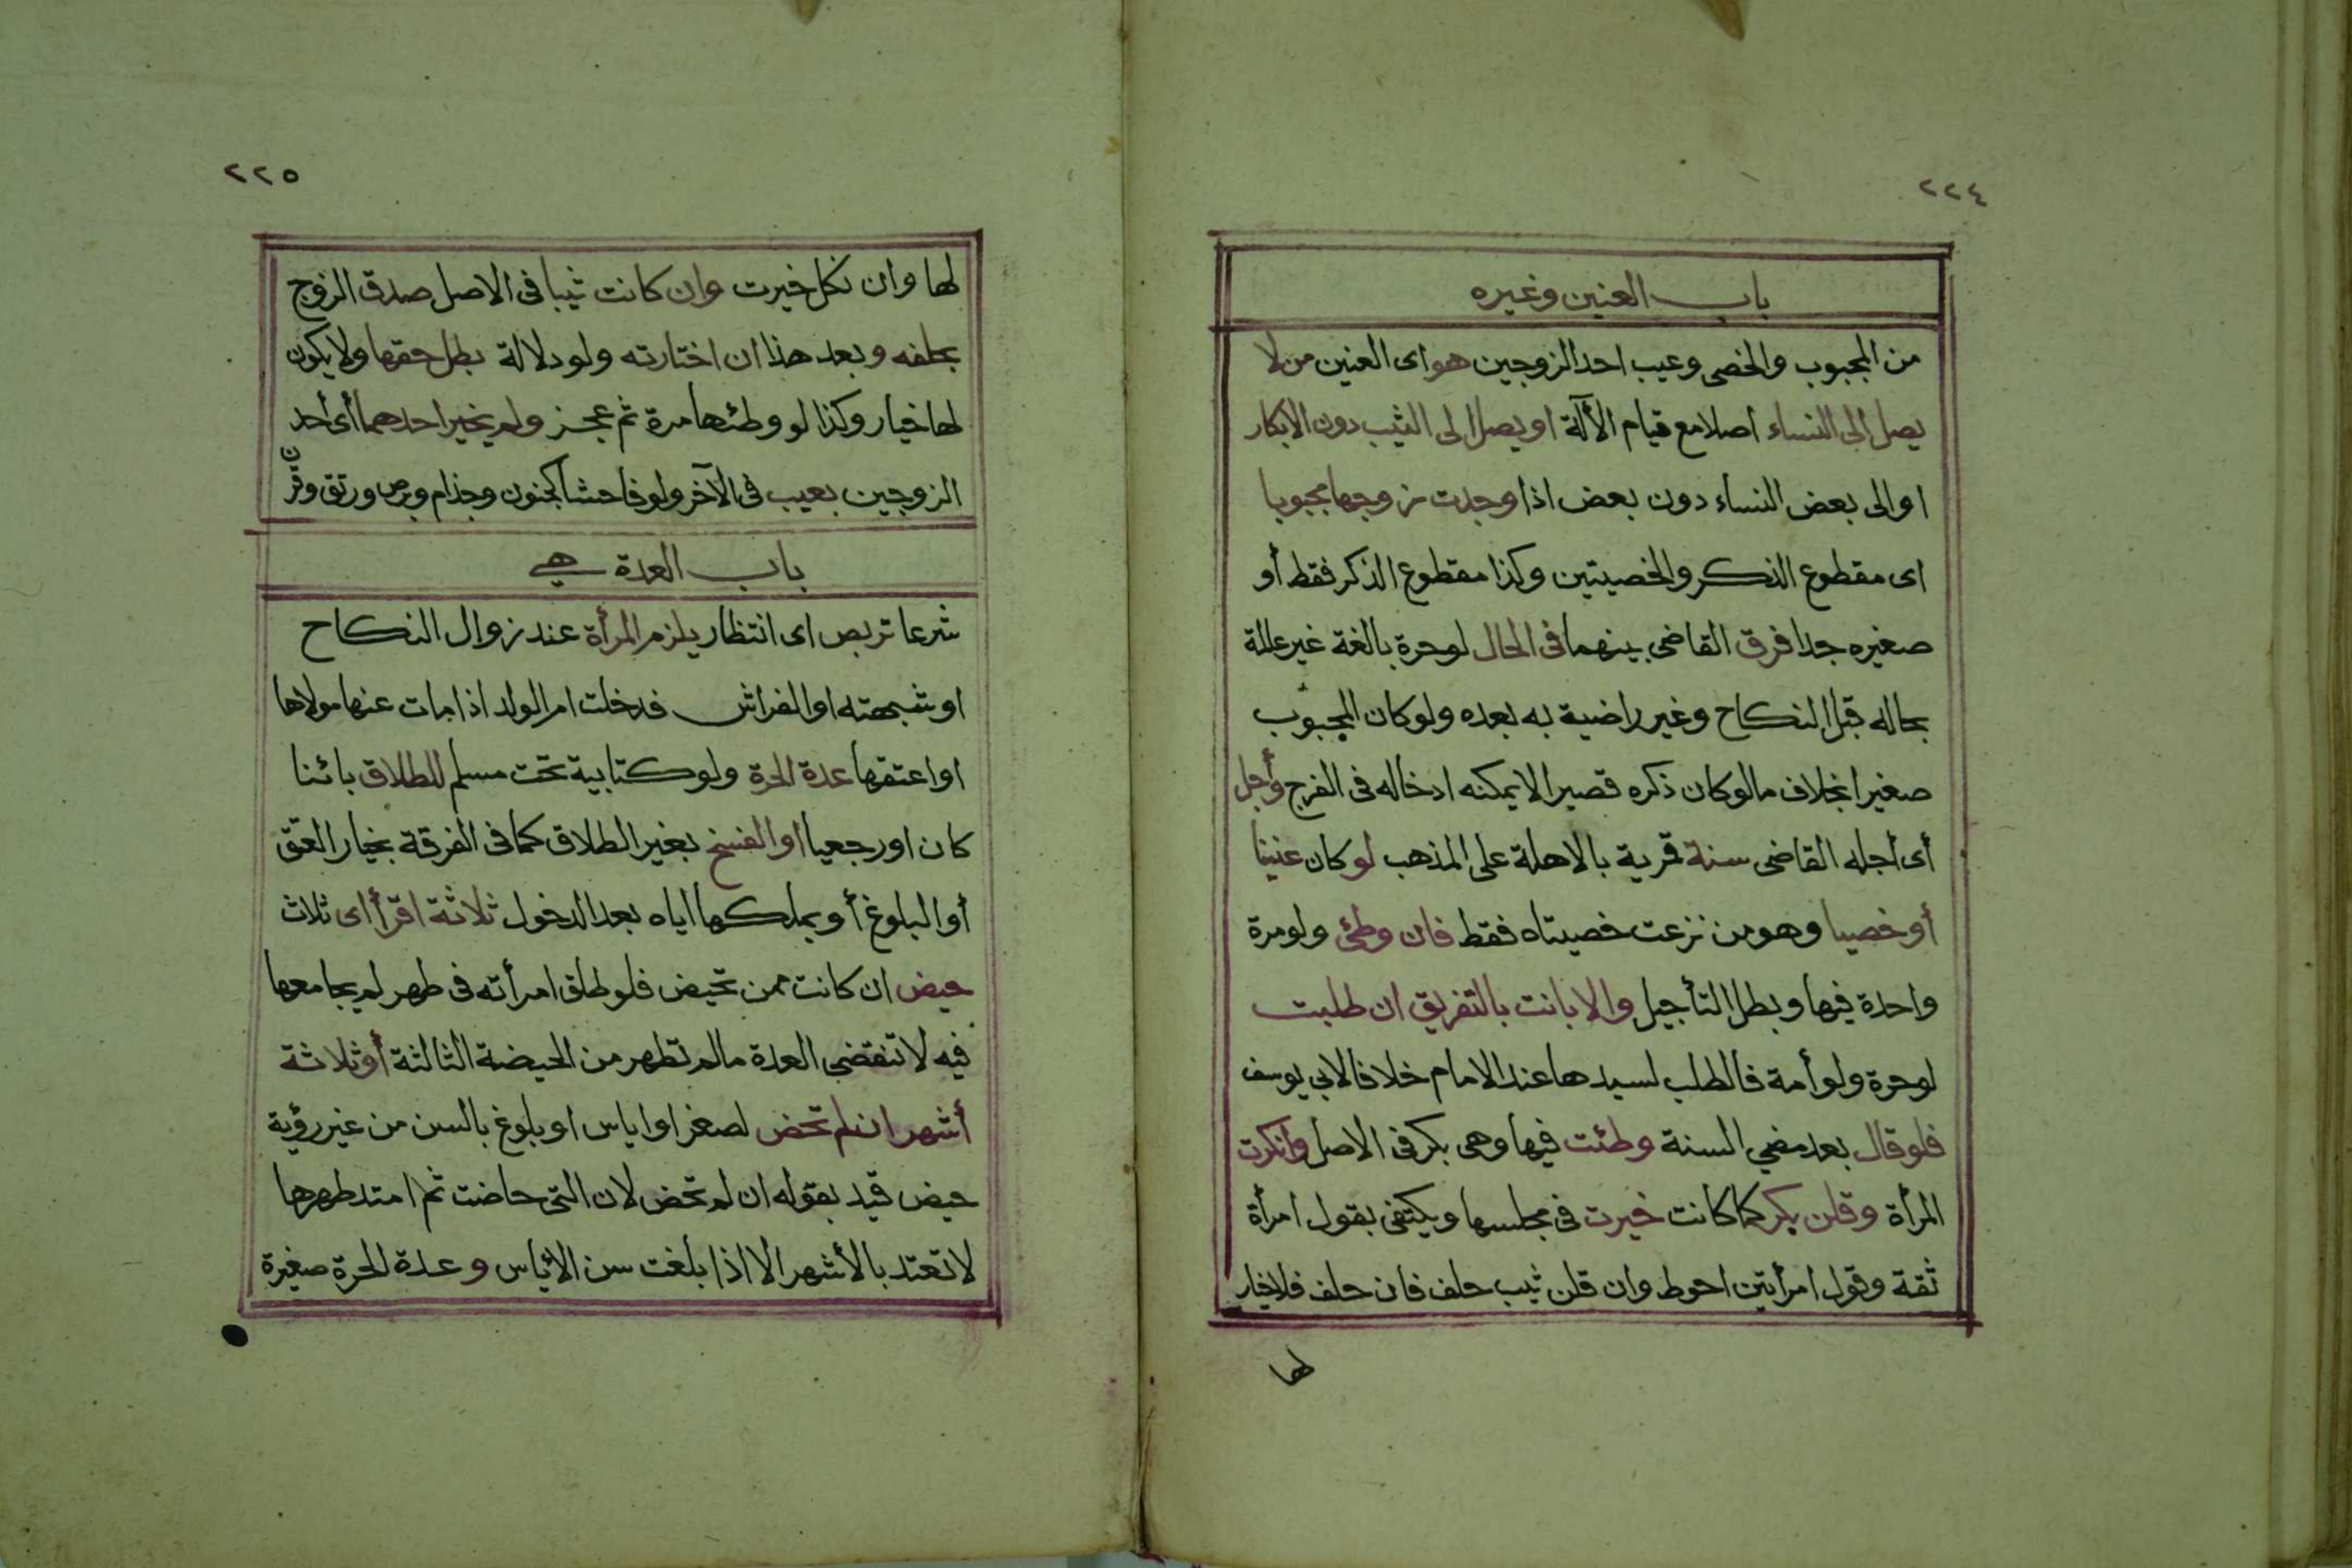 ٢٢٤
باب العنين وغيره
من المجبوب والخصى وعيب احد الزوجين هو اى العنين من لا
يصل الى النساء اصلا مع قيام الألة او يصل الى الثيب دون الابكار
او الى بعض النساء دون بعض اذا وجدت زوجها مجبوبا
اى مقطوع الذكر والخصيتين وكذا مقطوع الذكر فقط أو
صغيره جدا فرق القاضى بينهما فى الحال لو حرة بالغة غير عالمة
بحاله قبل النكاح وغير راضية به بعده ولو كان المجبوب
صغيرا بخلاف مالو كان ذكره قصيرا لا يمكنه ادخاله فى الفرج وأجل
أى أجله القاضى سنة قمرية بالاهلة على المذهب لو كان عنينا
أو خصيا وهو من نزعت خصيتاه فقط فان وطئ ولو مرة
واحدة فيها وبطل التأجيل والا بانت بالتفريق ان طلبت
لو حرة ولو أمة فالطلب لسيدها عند الامام خلافا لابي يوسف
فلو قال بعد مضي السنة وطئت فيها وهى بكر فى الاصل وانكرت
المرأة وقلن بكر كما كانت خيرت فى مجلسها ويكتفى بقول امرأة
ثقة وقول امرأتين احوط وان قلن ثيب حلف فان حلف فلا خيار
لها
٢٢٥
لها وان نكل خيرت وان كانت ثيبا فى الاصل صدق الزوج
بحلفه وبعد هذا ان اختارته ولو دلالة بطل حقها ولا يكون
لها خيار وكذا لو وطئها مرة ثم عجز ولم يخير احدهما أى أحد
الزوجين بعيب فى الآخر ولو فاحشا كجنون وجذام وبرص ورتق وقرن
باب العدة هي
شرعا تربص اى انتظار يلزم المرأة عند زوال النكاح
او شبهته او الفراش فدخلت ام الولد اذا مات عنها مولاها
او اعتقها عدة الحرة ولو كتابية تحت مسلم للطلاق بائنا
كان او رجعيا او الفسخ بغير الطلاق كما فى الفرقة بخيار العتق
أو البلوغ أو بملكها اياه بعد الدخول ثلاثة اقرأ اى ثلاث
حيض ان كانت ممن تحيض فلو طلق امرأته فى طهر لم يجامعها
فيه لا تنقضى العدة مالم تطهر من الحيضة الثالثة أو ثلاثة
أشهر ان لم تحض لصغر او اياس او بلوغ بالسن من غير رؤية
حيض قيد بقوله ان لم تحض لان التى حاضت ثم امتد طهرها
لا تعتد بالأشهر الا اذا بلغت سن الاياس وعدة الحرة صغيرة